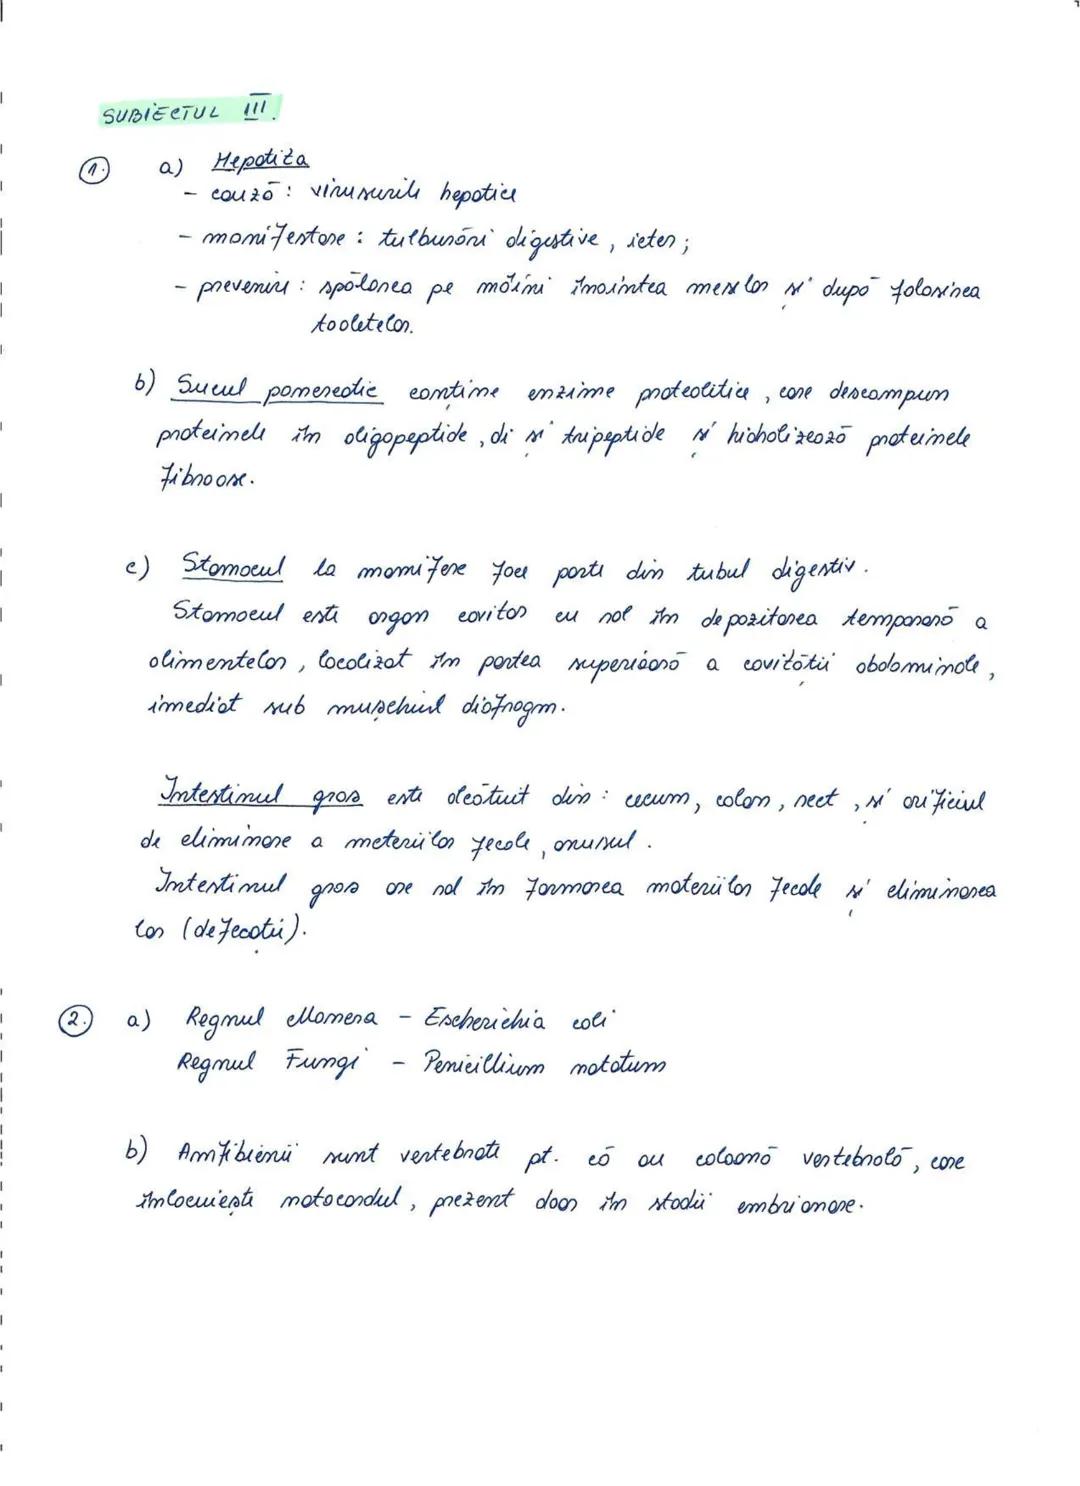 SUBIECTUL III.
1. a) Hepatita
- cauză: virusurile hepatice
- manifestare: tulburări digestive, icter;
- prevenire: spălarea pe mâini înaintea meselor și după folosirea
tooletelor.
b) Sucul pancreatic conține enzime proteolitice, care descompun
proteinele în oligopeptide, di și tripeptide și hidrolizează proteinele
fibroase.
c) Stomacul la mamifere face parte din tubul digestiv.
Stomacul este organ cavitar cu rol în depozitarea temporară a
alimentelor, localizat în partea superioară a cavității abdominale,
imediat sub mușchiul diafragm.
Intestinul gros este alcătuit din: cecum, colon, rect, și orificiul
de eliminare a meteriilor fecale, anusul.
Intestinul gros are rol în formarea materiilor fecale și eliminarea
lor (defecații).
2. a) Regnul Monera - Escherichia coli
Regnul Fungi - Penicillium notatum
b) Amfibienii sunt vertebrate pt. că au coloană vertebrală, care
înlocuiește notocordul, prezent doar în stadii embrionare.